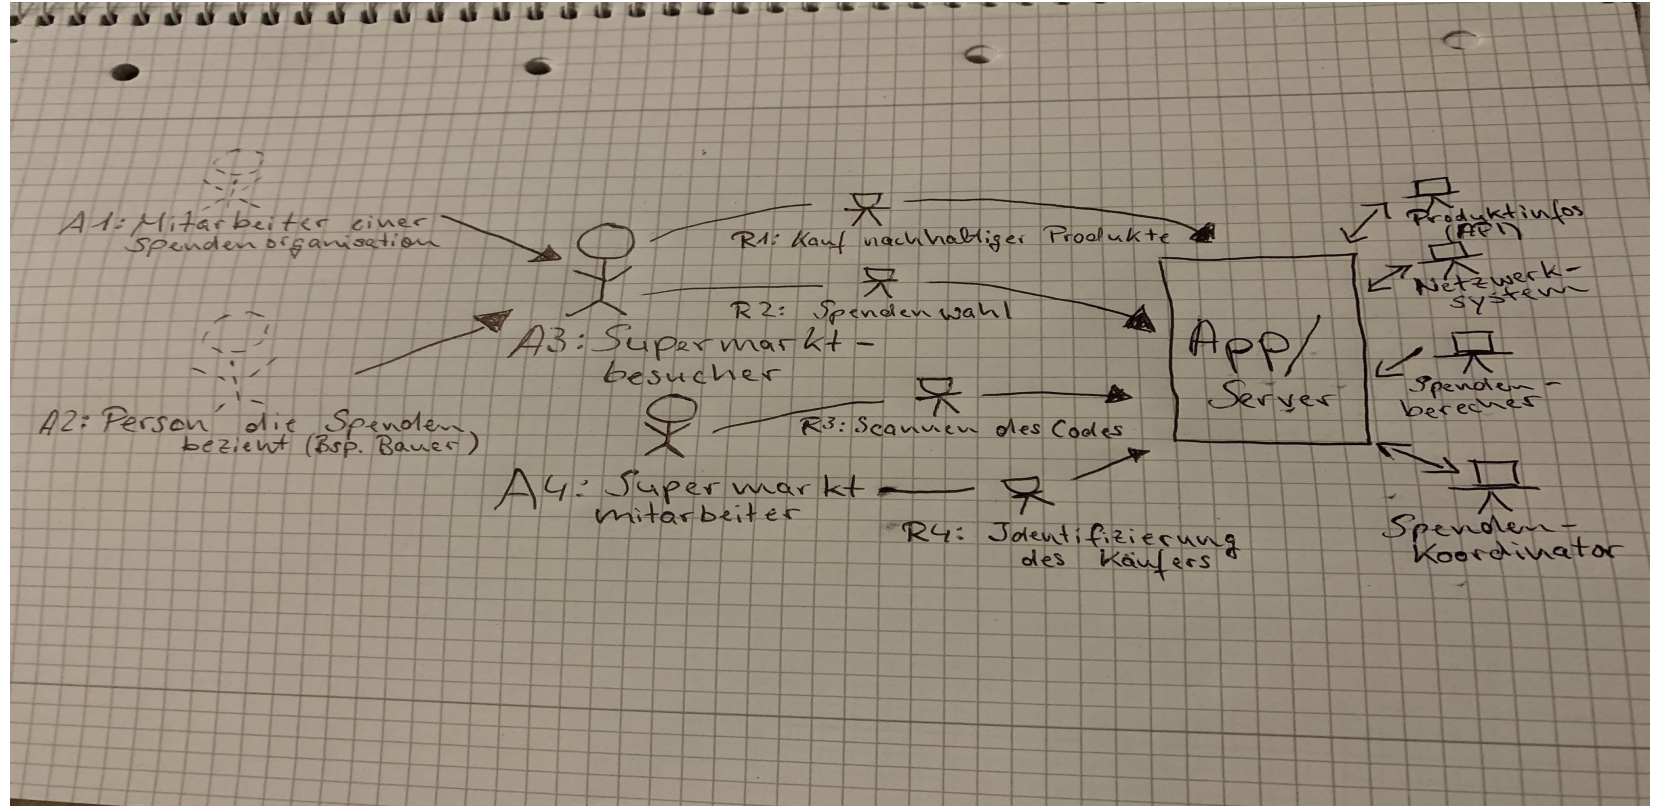 A1: Mitarbeiter einer
Spendenorganisation
A2: Person die Spenden
bezieht (Bsp. Bauer)
A3: Supermarkt-
besucher
A4: Supermarkt
mitarbeiter
R1: Kauf nachhaltiger Produkte
R2: Spendenwahl
R3: Scannen des Codes
R4: Identifizierung
des Käufers
App/
Server
Produktinfos
(API)
Netzwerk-
system
Spenden-
berecher
Spenden-
Koordinator